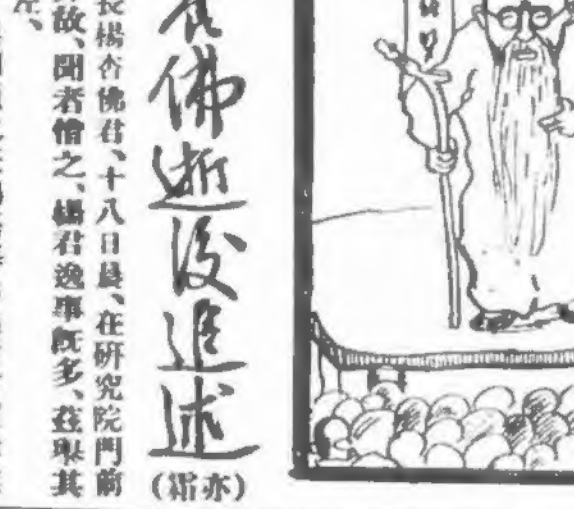 杏佛逝後追述
（亦霜）
長楊杏佛君、十八日晨、在研究院門前
故、聞者惜之、楊君逸事旣多、茲舉其